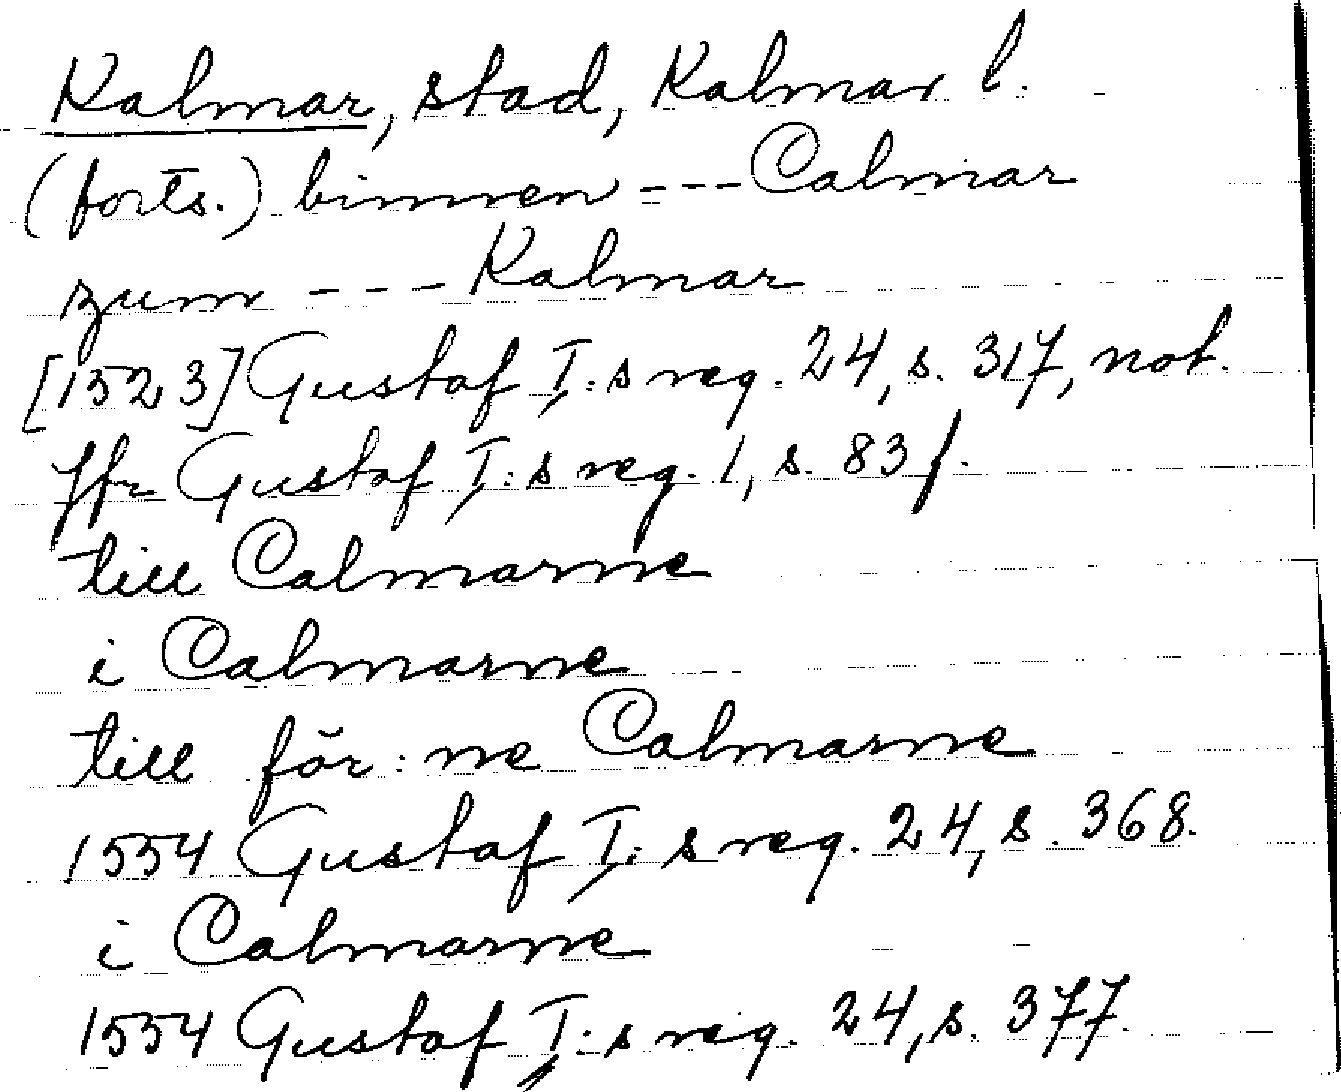 Kalmar, stad, Kalmar l.
(forts.) binnen --- Calmar
zum --- Kalmar
[1523] Gustaf I:s reg. 24, s. 317, not.
Jfr Gustaf I:s reg. 1, s. 83 f.
till Calmarne
i Calmarne
till för:ne Calmarne
1554 Gustaf I:s reg. 24, s. 368.
i Calmarne
1554 Gustaf I:s reg. 24, s. 377.